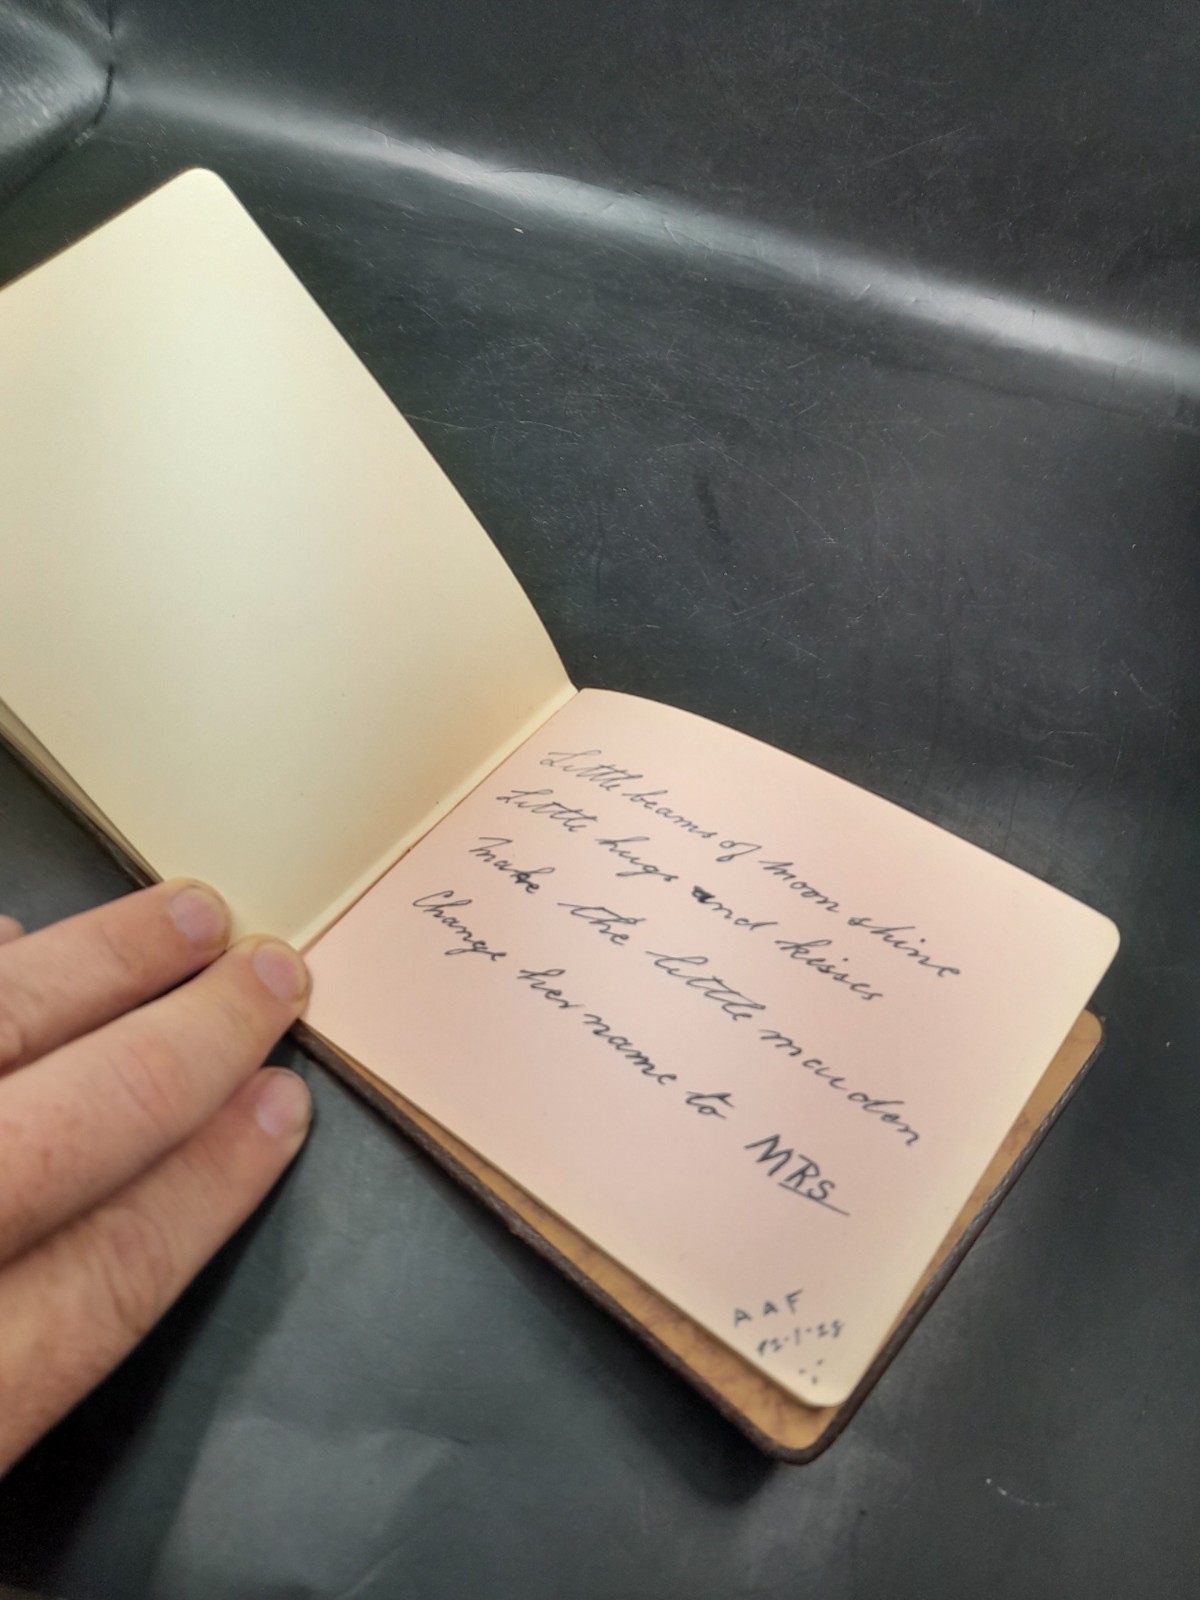 Little beams of moon shine
Little hugs and kisses
Make the little maiden
Change her name to MRS
A A F